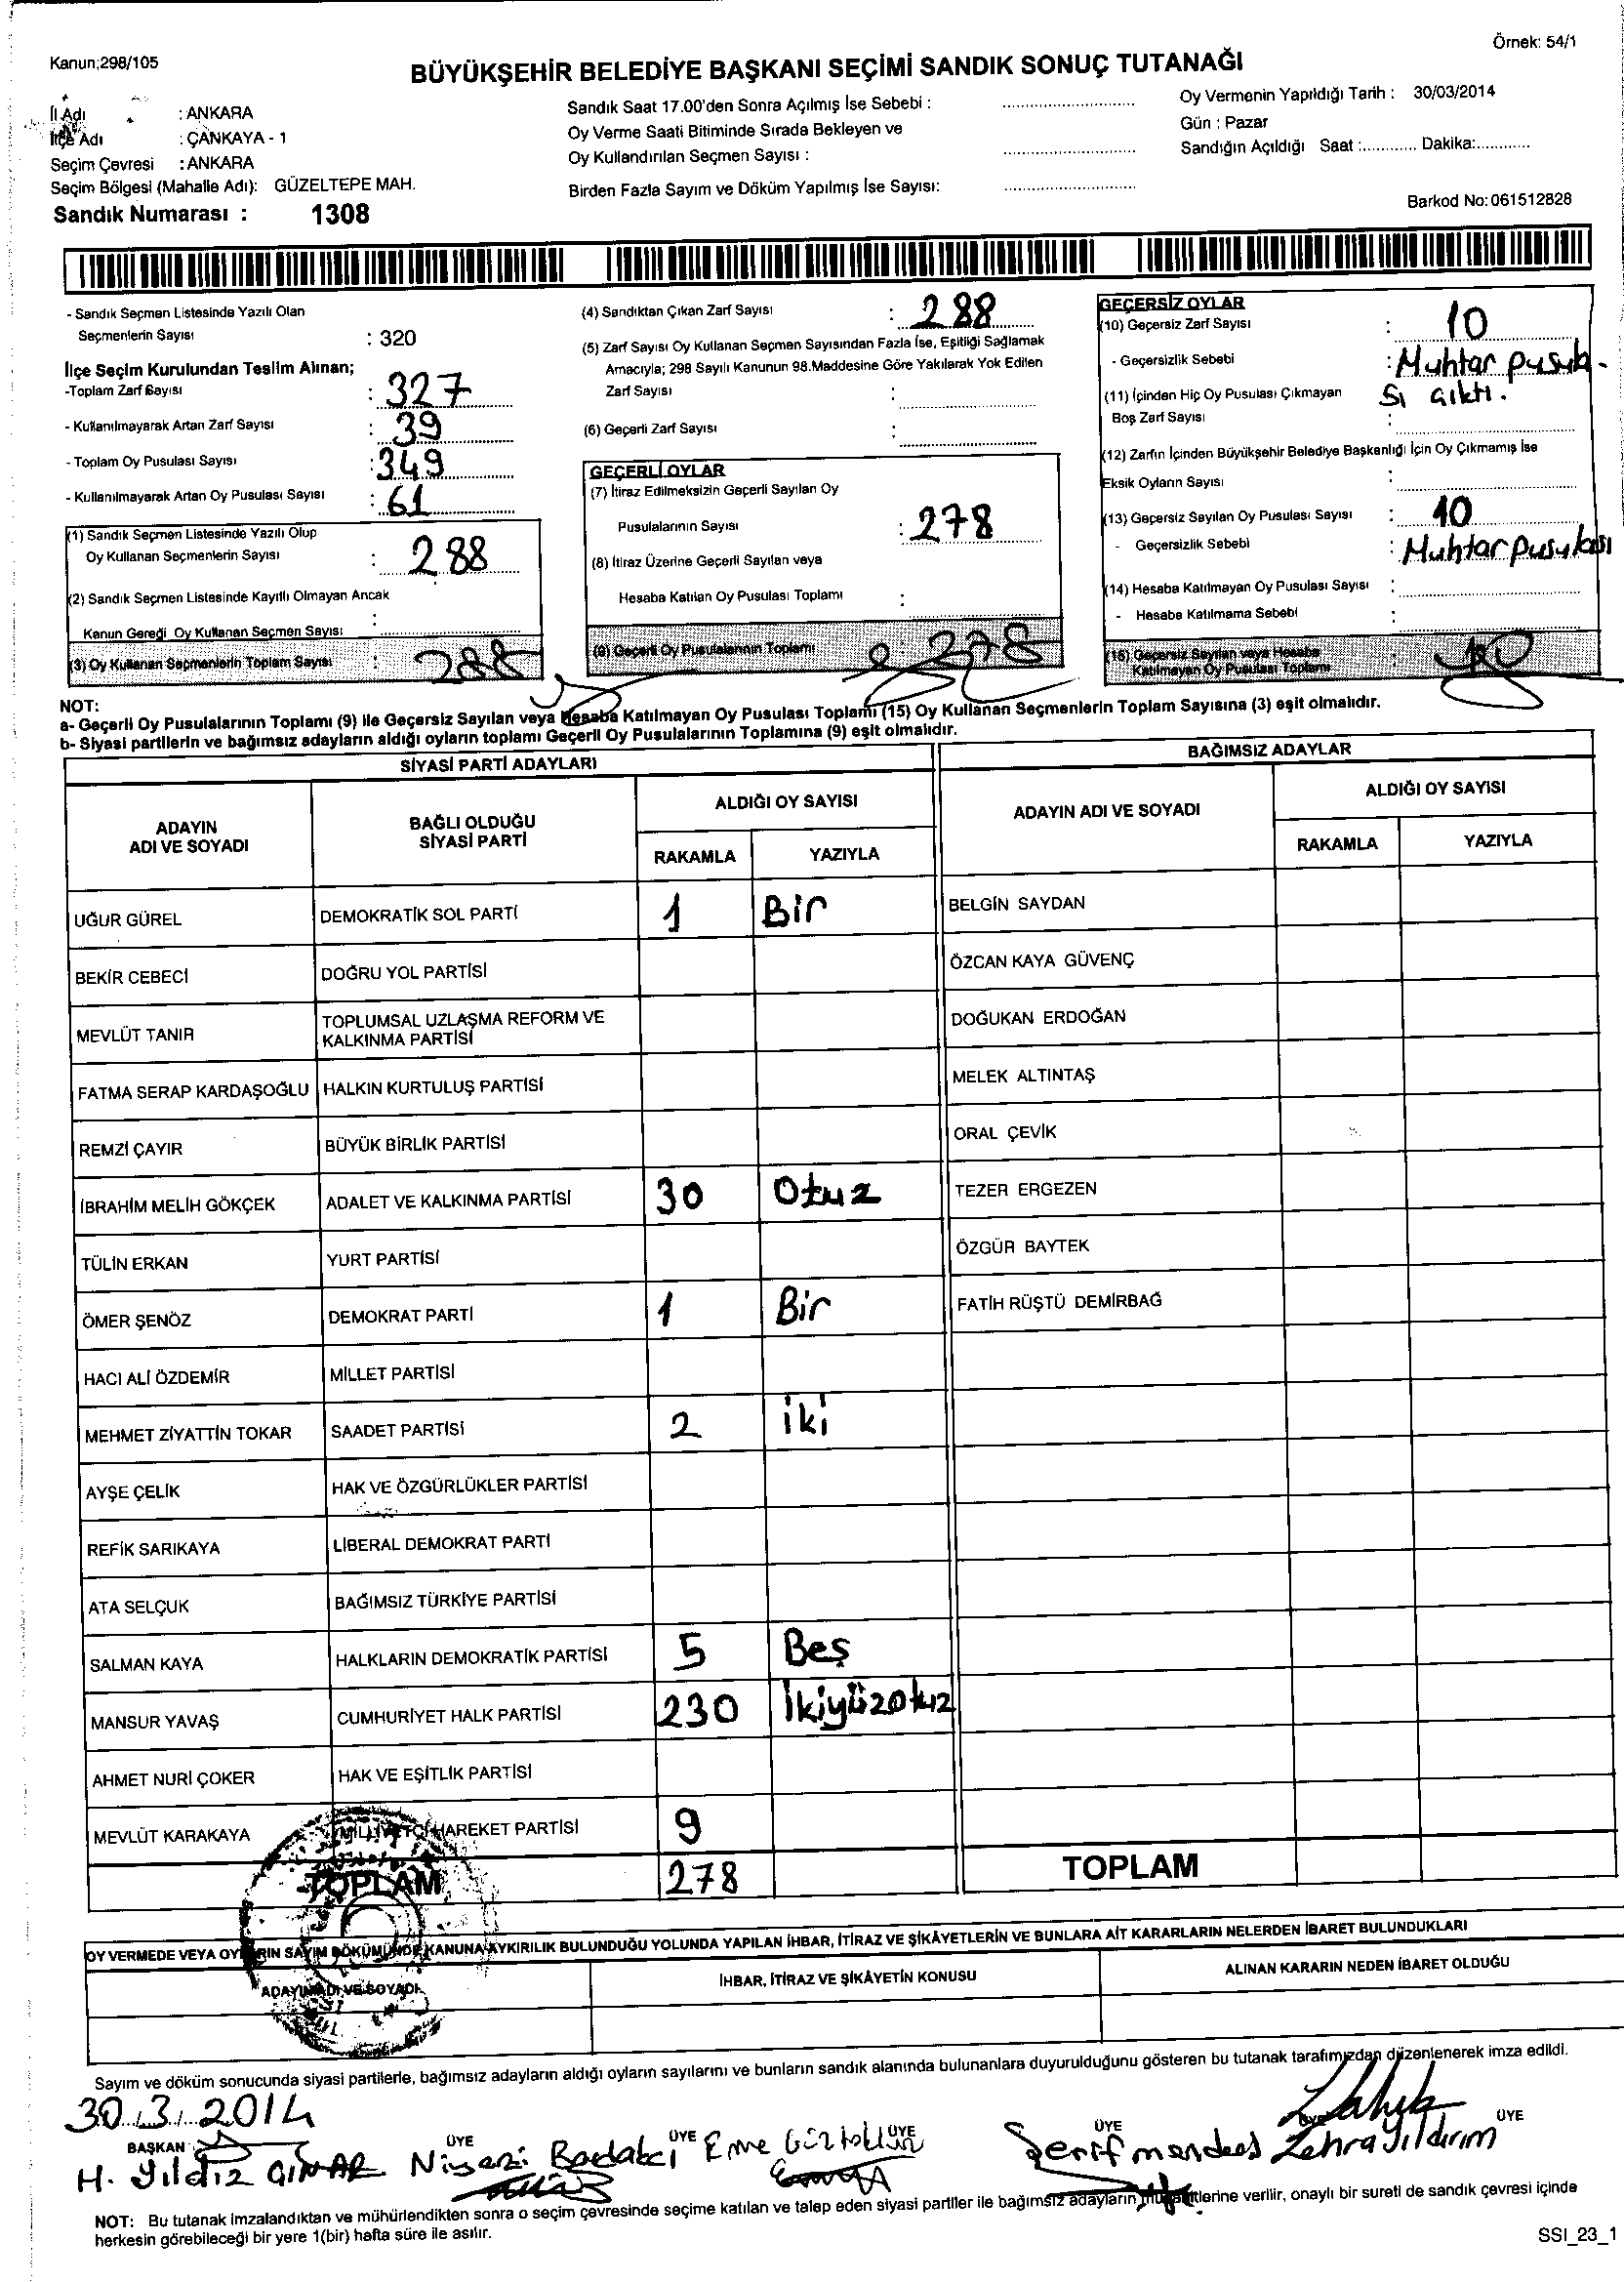 Kanun;298/105
Örnek: 54/1
BÜYÜKŞEHİR BELEDİYE BAŞKANI SEÇİMİ SANDIK SONUÇ TUTANAĞI
İl Adı : ANKARA
İlçe Adı : ÇANKAYA - 1
Seçim Çevresi : ANKARA
Seçim Bölgesi (Mahalle Adı): GÜZELTEPE MAH.
Sandık Numarası : 1308
Sandık Saat 17.00'den Sonra Açılmış İse Sebebi :
Oy Verme Saati Bitiminde Sırada Bekleyen ve
Oy Kullandırılan Seçmen Sayısı :
Birden Fazla Sayım ve Döküm Yapılmış İse Sayısı:
Oy Vermenin Yapıldığı Tarih : 30/03/2014
Gün : Pazar
Sandığın Açıldığı Saat :............ Dakika:............
Barkod No: 061512828
- Sandık Seçmen Listesinde Yazılı Olan
Seçmenlerin Sayısı : 320
İlçe Seçim Kurulundan Teslim Alınan;
-Toplam Zarf Sayısı : 327
- Kullanılmayarak Artan Zarf Sayısı : 39
- Toplam Oy Pusulası Sayısı : 349
- Kullanılmayarak Artan Oy Pusulası Sayısı : 61
(1) Sandık Seçmen Listesinde Yazılı Olup
Oy Kullanan Seçmenlerin Sayısı : 288
(2) Sandık Seçmen Listesinde Kayıtlı Olmayan Ancak
Kanun Gereği Oy Kullanan Seçmen Sayısı :
(3) Oy Kullanan Seçmenlerin Toplam Sayısı : 288
(4) Sandıktan Çıkan Zarf Sayısı : 288
(5) Zarf Sayısı Oy Kullanan Seçmen Sayısından Fazla İse, Eşitliği Sağlamak
Amacıyla; 298 Sayılı Kanunun 98.Maddesine Göre Yakılarak Yok Edilen
Zarf Sayısı :
(6) Geçerli Zarf Sayısı :
GEÇERLİ OYLAR
(7) İtiraz Edilmeksizin Geçerli Sayılan Oy
Pusulalarının Sayısı : 278
(8) İtiraz Üzerine Geçerli Sayılan veya
Hesaba Katılan Oy Pusulası Toplamı :
(9) Geçerli Oy Pusulalarının Toplamı : 278
GEÇERSİZ OYLAR
(10) Geçersiz Zarf Sayısı : 10
- Geçersizlik Sebebi : Muhtar pusula-
sı çıktı.
(11) İçinden Hiç Oy Pusulası Çıkmayan
Boş Zarf Sayısı :
(12) Zarfın İçinden Büyükşehir Belediye Başkanlığı İçin Oy Çıkmamış İse
Eksik Oyların Sayısı :
(13) Geçersiz Sayılan Oy Pusulası Sayısı : 10
- Geçersizlik Sebebi : Muhtar pusulası
(14) Hesaba Katılmayan Oy Pusulası Sayısı :
- Hesaba Katılmama Sebebi :
(15) Geçersiz Sayılan veya Hesaba
Katılmayan Oy Pusulası Toplamı : 10
NOT:
a- Geçerli Oy Pusulalarının Toplamı (9) ile Geçersiz Sayılan veya Hesaba Katılmayan Oy Pusulası Toplamı (15) Oy Kullanan Seçmenlerin Toplam Sayısına (3) eşit olmalıdır.
b- Siyasi partilerin ve bağımsız adayların aldığı oyların toplamı Geçerli Oy Pusulalarının Toplamına (9) eşit olmalıdır.
SİYASİ PARTİ ADAYLARI
BAĞIMSIZ ADAYLAR
ADAYIN
ADI VE SOYADI
BAĞLI OLDUĞU
SİYASİ PARTİ
ALDIĞI OY SAYISI
RAKAMLA YAZIYLA
ADAYIN ADI VE SOYADI
ALDIĞI OY SAYISI
RAKAMLA YAZIYLA
UĞUR GÜREL DEMOKRATİK SOL PARTİ 1 Bir BELGİN SAYDAN
BEKİR CEBECİ DOĞRU YOL PARTİSİ ÖZCAN KAYA GÜVENÇ
MEVLÜT TANIR TOPLUMSAL UZLAŞMA REFORM VE
KALKINMA PARTİSİ DOĞUKAN ERDOĞAN
FATMA SERAP KARDAŞOĞLU HALKIN KURTULUŞ PARTİSİ MELEK ALTINTAŞ
REMZİ ÇAYIR BÜYÜK BİRLİK PARTİSİ ORAL ÇEVİK
İBRAHİM MELİH GÖKÇEK ADALET VE KALKINMA PARTİSİ 30 Otuz TEZER ERGEZEN
TÜLİN ERKAN YURT PARTİSİ ÖZGÜR BAYTEK
ÖMER ŞENÖZ DEMOKRAT PARTİ 1 Bir FATİH RÜŞTÜ DEMİRBAĞ
HACI ALİ ÖZDEMİR MİLLET PARTİSİ
MEHMET ZİYATTİN TOKAR SAADET PARTİSİ 2 iki
AYŞE ÇELİK HAK VE ÖZGÜRLÜKLER PARTİSİ
REFİK SARIKAYA LİBERAL DEMOKRAT PARTİ
ATA SELÇUK BAĞIMSIZ TÜRKİYE PARTİSİ
SALMAN KAYA HALKLARIN DEMOKRATİK PARTİSİ 5 Beş
MANSUR YAVAŞ CUMHURİYET HALK PARTİSİ 230 İkiyüzotuz
AHMET NURİ ÇOKER HAK VE EŞİTLİK PARTİSİ
MEVLÜT KARAKAYA MİLLİYETÇİ HAREKET PARTİSİ 9
TOPLAM 278 TOPLAM
OY VERMEDE VEYA OYLARIN SAYIM DÖKÜMÜNDE KANUNA AYKIRILIK BULUNDUĞU YOLUNDA YAPILAN İHBAR, İTİRAZ VE ŞİKÂYETLERİN VE BUNLARA AİT KARARLARIN NELERDEN İBARET BULUNDUKLARI
ADAYIN ADI VE SOYADI İHBAR, İTİRAZ VE ŞİKÂYETİN KONUSU ALINAN KARARIN NEDEN İBARET OLDUĞU
Sayım ve döküm sonucunda siyasi partilerle, bağımsız adayların aldığı oyların sayılarını ve bunların sandık alanında bulunanlara duyurulduğunu gösteren bu tutanak tarafımızdan düzenlenerek imza edildi.
30.3.2014
BAŞKAN ÜYE ÜYE ÜYE ÜYE ÜYE
H. Yıldız Niyazi Emre Şerif Zehra Yıldırım
NOT: Bu tutanak imzalandıktan ve mühürlendikten sonra o seçim çevresinde seçime katılan ve talep eden siyasi partiler ile bağımsız adayların müşahitlerine verilir, onaylı bir sureti de sandık çevresi içinde
herkesin görebileceği bir yere 1(bir) hafta süre ile asılır.
SSI_23_1